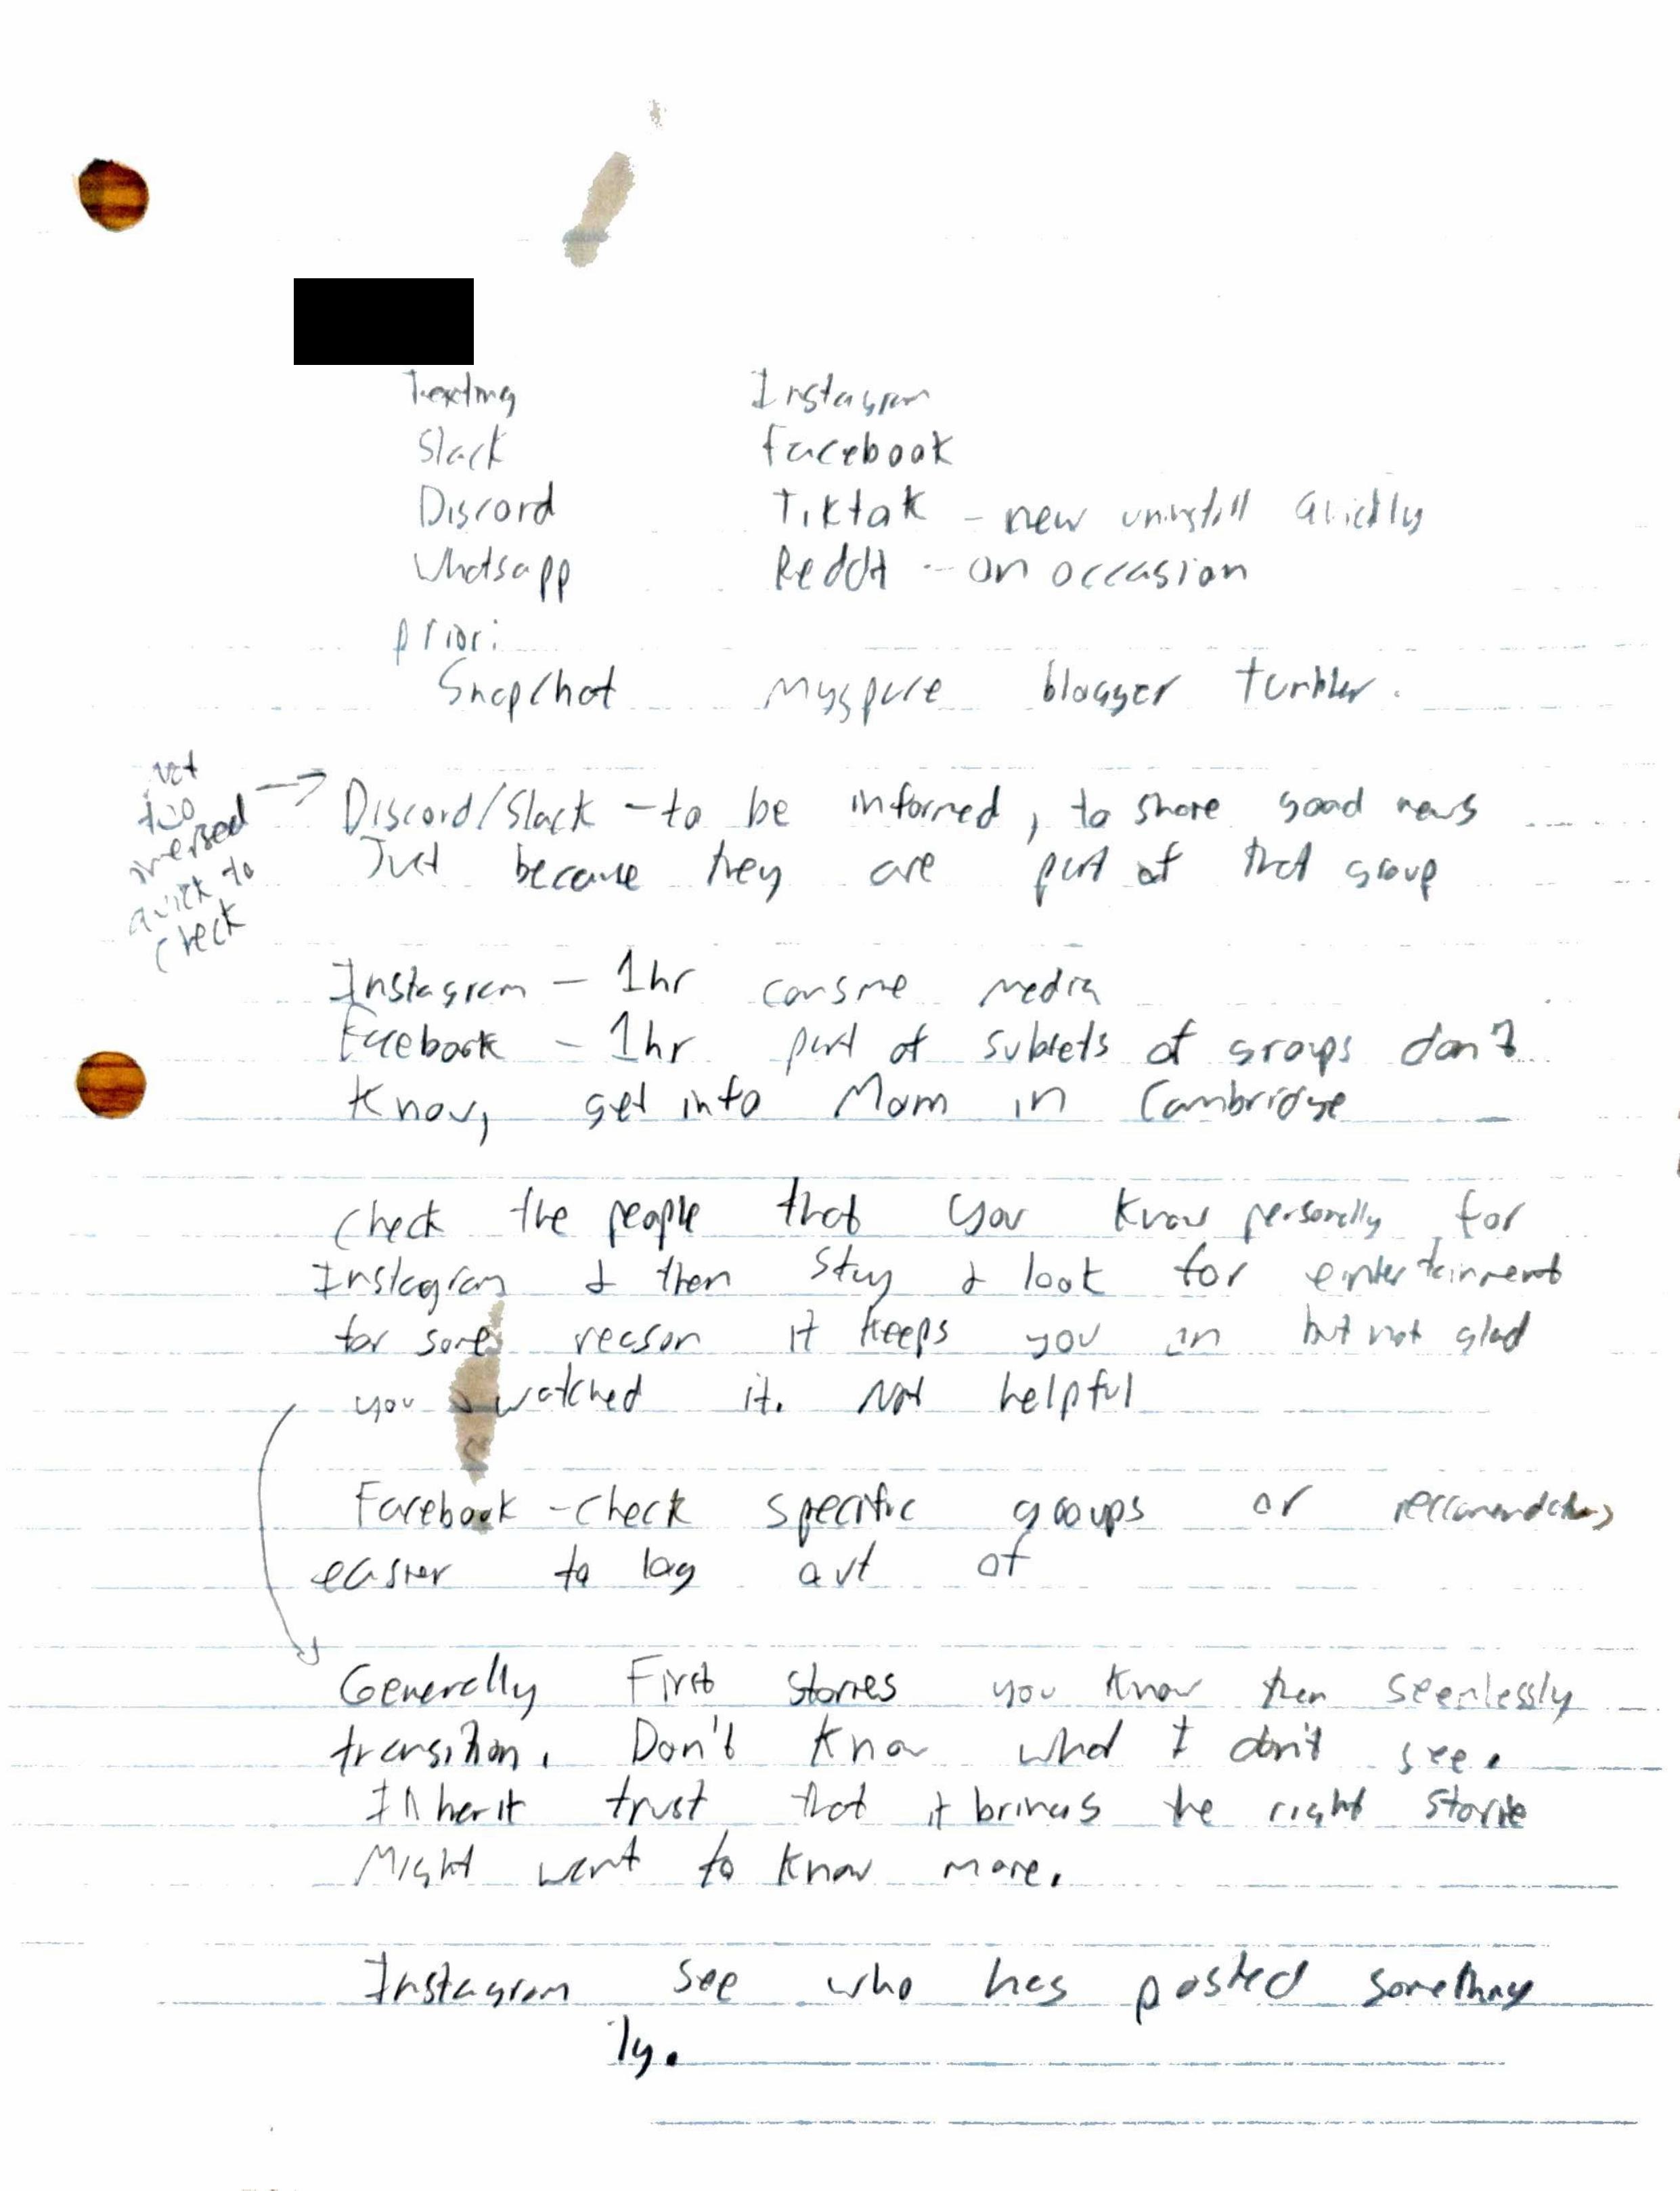 Texting Instagram
Slack Facebook
Discord Tiktok - new uninstall Quickly
Whatsapp Reddit - on occasion
prior:
Snapchat Myspace blogger tumbler.
not
too
immersed
quick to
check
→ Discord/Slack - to be informed, to share good news
Just because they are part of that group
Instagram - 1hr consme media
Facebook - 1hr part of subsets of groups don't
know, get into Mom in Cambridge
check the people that you know personally for
Instagram & then stay & look for entertainment
for some reason it keeps you on but not glad
you watched it. Not helpful
Facebook - check specific groups or
easier to log out of
Generally First stories you know then seemlessly
transition. Don't know what I don't see.
Inherit trust that it brings the right storie
Might want to know more.
Instagram see who has posted something
ly.